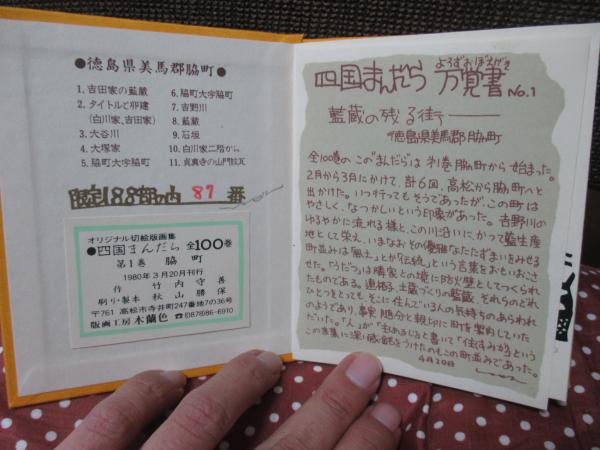 ●徳島県美馬郡脇町●
1. 吉田家の藍蔵
2. タイトルと卯建
(白川家、吉田家)
3. 大谷川
4. 大塚家
5. 脇町大字脇町
6. 脇町大字脇町
7. 吉野川
8. 藍蔵
9. 石垣
10. 白川家二階から
11. 貞真寺の山門紋瓦
限定188部の内 87 番
オリジナル切絵版画集
●四国まんだら 全100巻
第1巻 脇町
1980年3月20日刊行
作 竹内守善
刷り・製本 秋山勝保
〒761 高松市寺井町247番地7の36号
版画工房 木蘭色 ☎(0878)86-6910
四国まんだら 万覚書 No.1
よろずおぼえがき
藍蔵の残る街――
徳島県美馬郡脇町
全100巻のこの“まんだら”は第1巻脇町から始まった。
2月から3月にかけて、計6回、高松から脇町へと
出かけた。いつ行ってもそうであったが、この町は
やさしく、なつかしいという印象があった。吉野川の
ゆるやかに流れる様と、この川沿いに、かつて藍生産
地として栄え、いまなおその優雅なたたずまいをみせる
町並みは「風土」とか「伝統」という言葉をおもいおこさ
せた。うだつは隣家との境に防火壁としてつくられ
たものである。連格子、土蔵づくりの藍蔵、それらのどれ
ひとつをとっても、そこに住んでいる人の気持ちのあらわれ
のようであり、事実、随分と親切に町を案内していた
だいた。「人」が「主(あるじ)」と書いて「住(すみか)」という
この言葉に深い感銘をうけたのもこの町並みであった。
4月20日